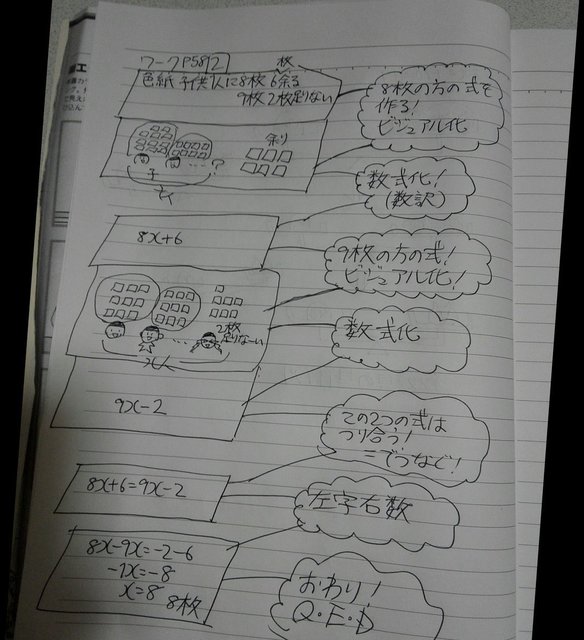 ワークP58 2
色紙 子供1人に8枚 6枚余る
9枚 2枚足りない
8枚の方の式を
作る!
ビジュアル化
余り
子
…?
x人
数式化!
(数訳)
8x+6
9枚の方の式!
ビジュアル化!
2枚
足りなーい
…
x人
数式化
9x-2
この2つの式は
つり合う!
=でつなぐ!
8x+6=9x-2
左字右数
8x-9x=-2-6
-1x=-8
x=8
8枚
おわり!
Q・E・D